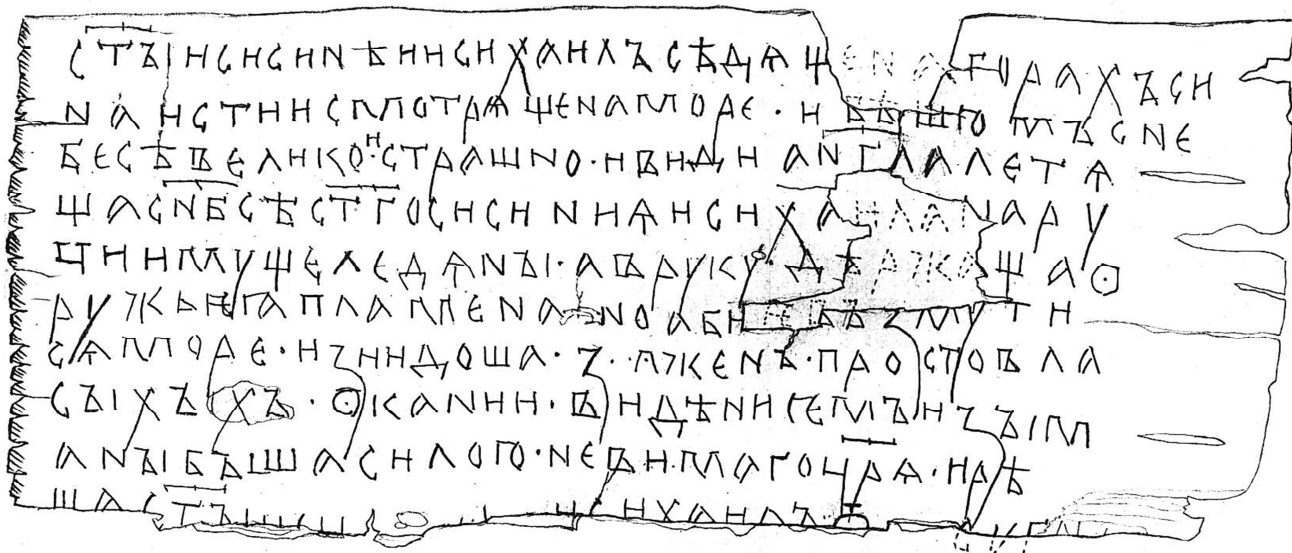 стъıисисинѣиисихаилъсѣдѧщенагорахъси
наистиисмотрѧщенаморе·ибъıшюмъсне
бесѣвелико·истрашно·ивидиангалалетѧ
щаснбсѣстгосисиниѧисихаиланару
чиимущеледѧнъı·авруку·дьржащао
ружьегапламенаноабиевъзмути
сѧморе·изиидоша·з·женъ·простовла
съıхъхъ·окании·видѣниемъизъıм
анъıбъшасилого·невимагоцрѧ·ирѣ
шастъı сихаилъ